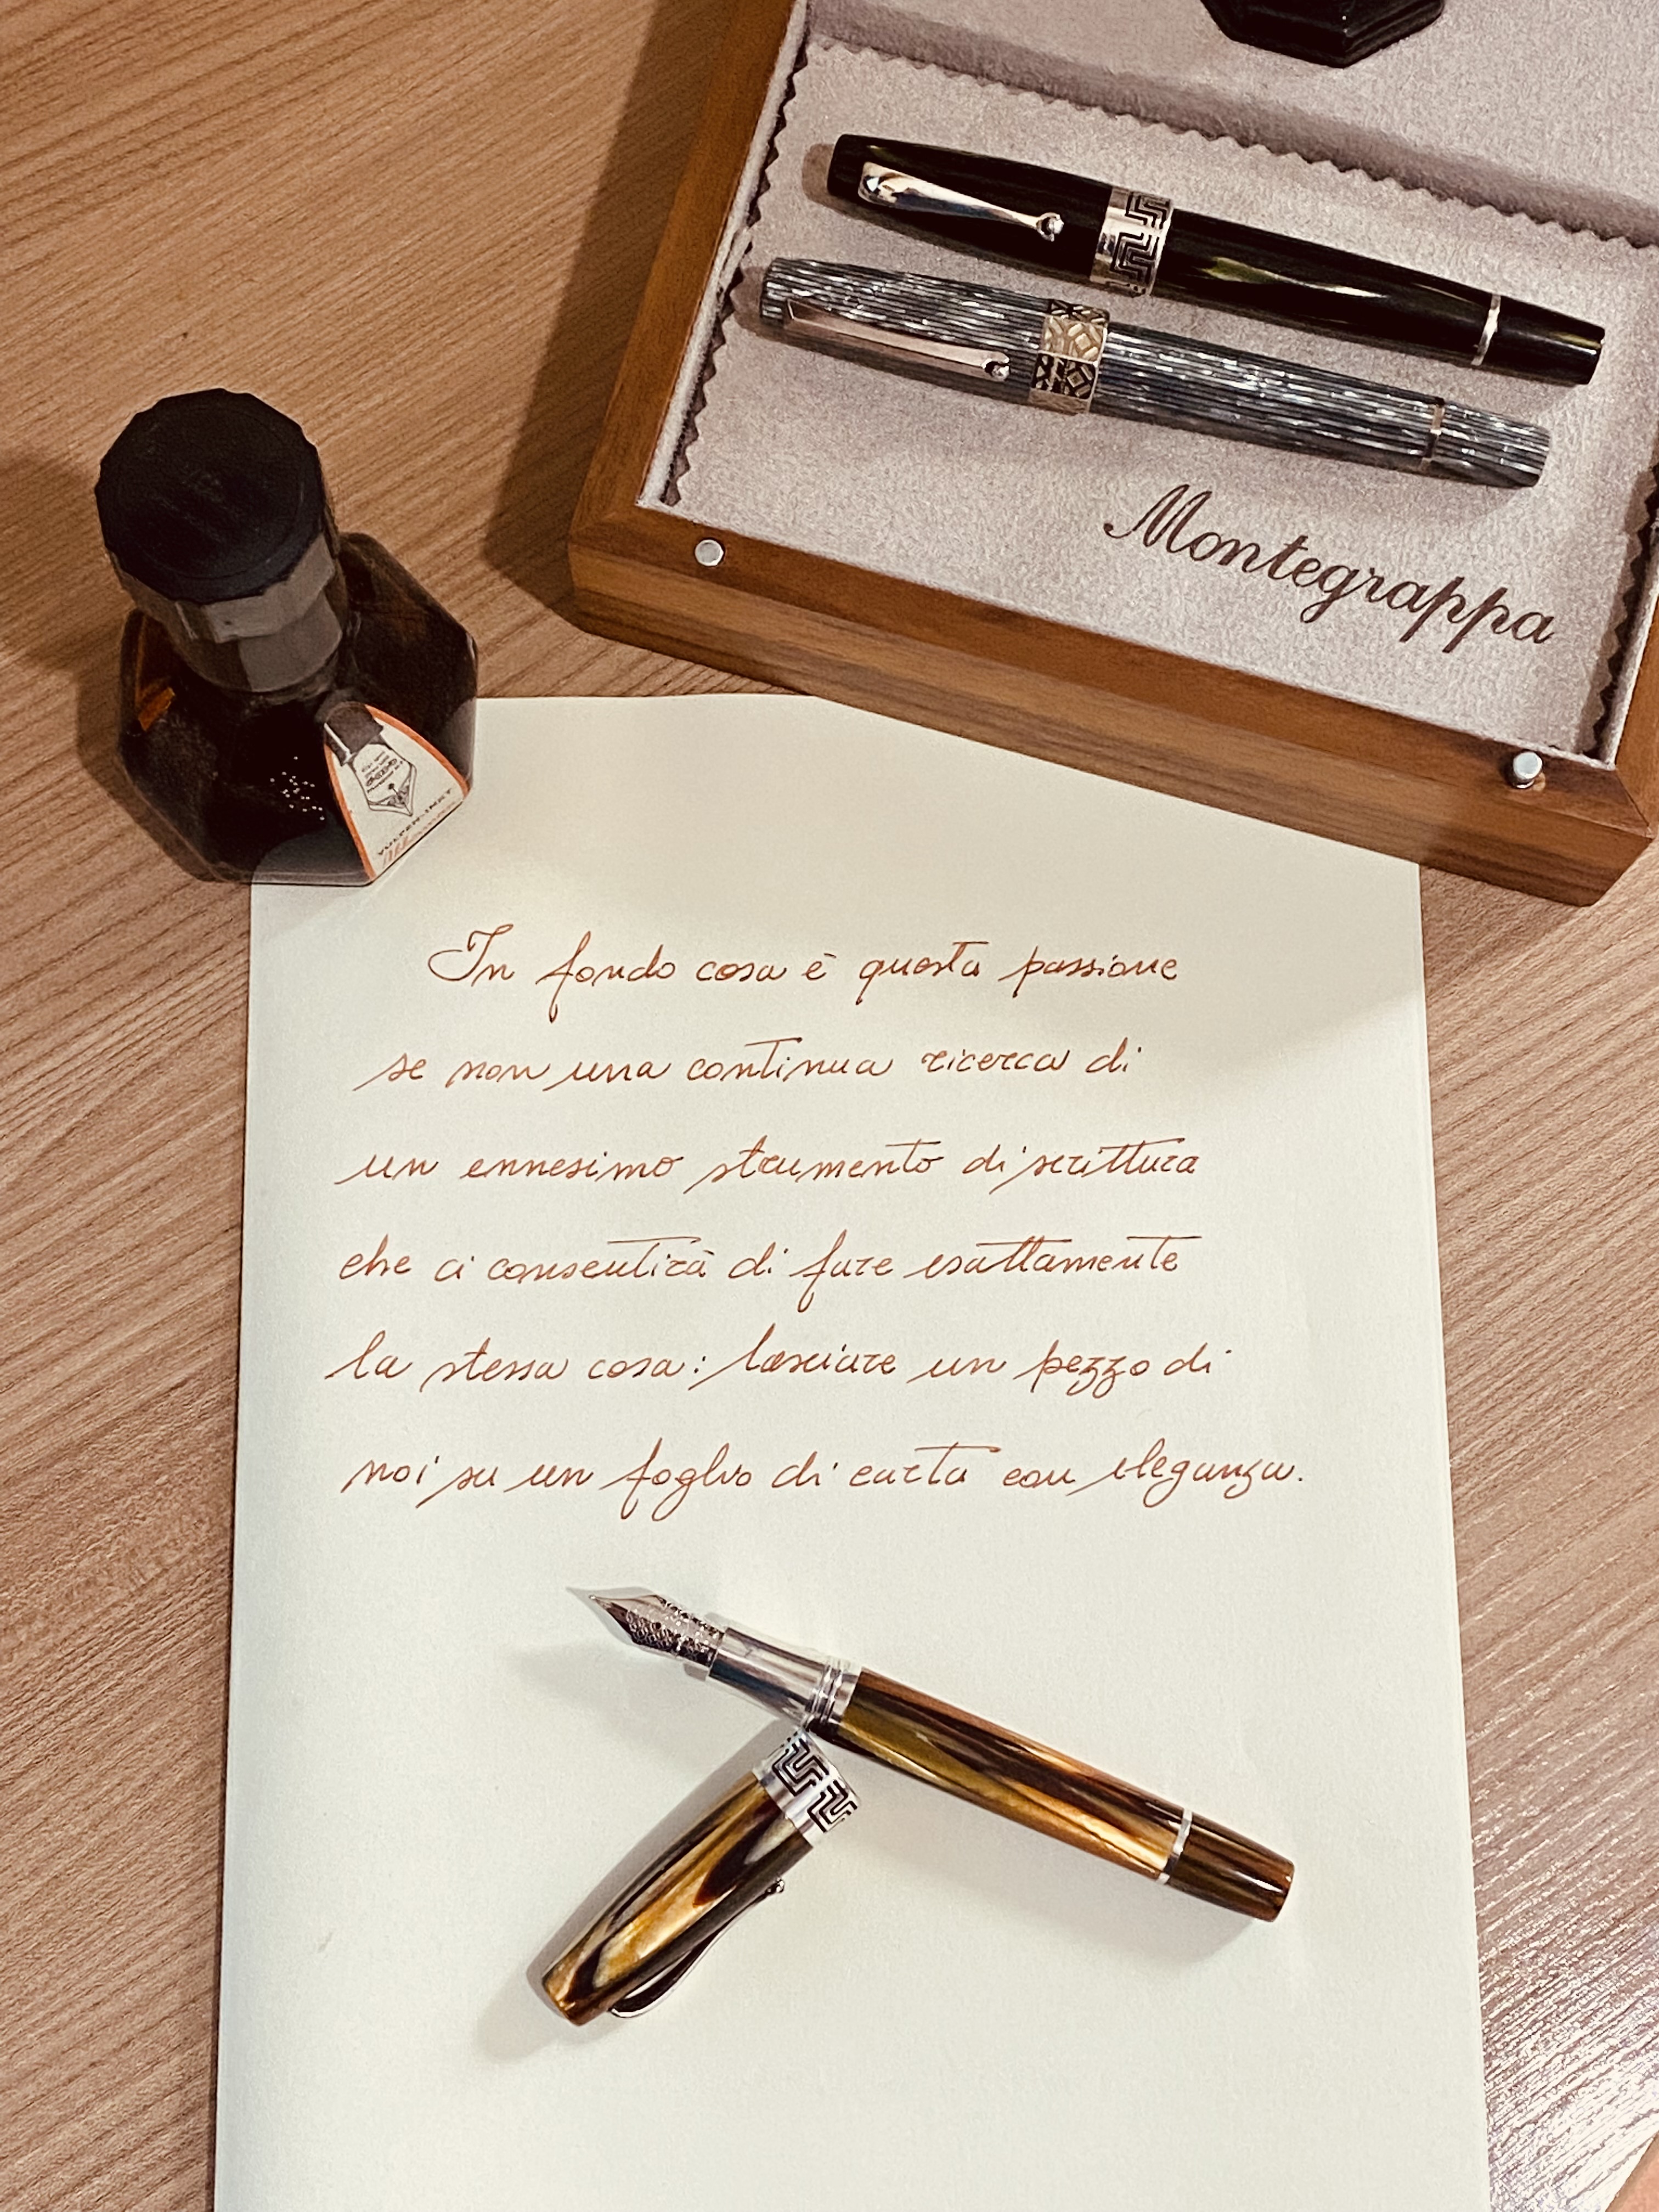 Montegrappa
In fondo cosa è questa passione
se non una continua ricerca di
un ennesimo strumento di scrittura
che ci consentirà di fare esattamente
la stessa cosa: lasciare un pezzo di
noi su un foglio di carta con eleganza.